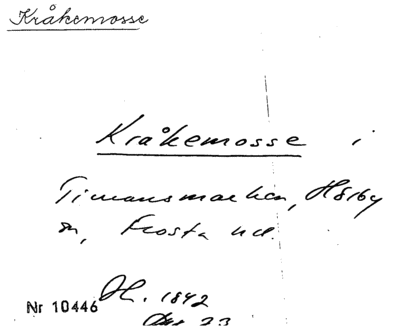 Kråkemosse
Kråkemosse i
Timansmarken, Hörby
sn, Frosta hd.
Nr 10446 1842
23